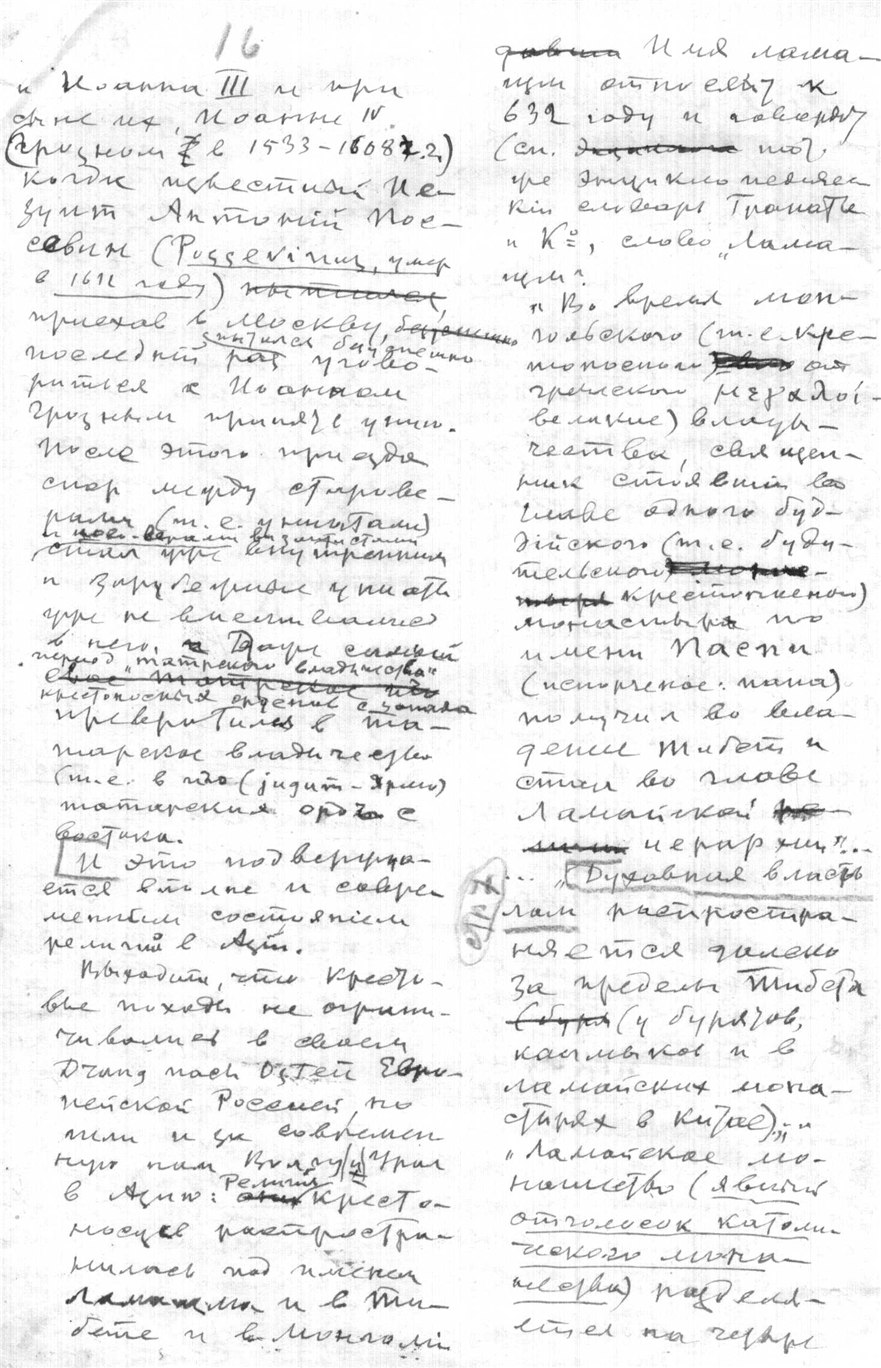 16
и Иоанна III и при
сыне их, Иоанне IV
(грозном в 1533–1608 г.г.)
когда известный Ие-
зуит Антоний Пос-
севин (Possevinus, умер
в 1611 году) пытался
приехав в Москву, безуспешно
пытался безуспешно
последний раз угово-
риться с Иоанном
Грозным принять унию.
После этого приезда
спор между старове-
рами (т.е. униатами)
и ново-верами византистами
стал уже внутренним
и зарубежные униаты
уже не вмешивались
в него. Даже самый
период "татарского владычества"
свое татарское иго
крестоносных орденов с запада
превратилось в та-
тарское владычество
(т.е. в иго (jugum-ярмо)
татарских орд с
востока.
И это подтвержда-
ется вполне и совре-
менным состоянием
религий в Азии.
Выходит, что Кресто-
вые походы не ограни-
чивались в своем
Drang nach Osten Евро-
пейской Россией, но
шли и за современ-
ную нам Волгу и Урал
в Азию: Религия кресто-
носцев распростра-
нилась под именем
Ламаизма и в Ти-
бете и в Монголии
Имя лама-
изм относят к
632 году и говорят
(см. тот
же энциклопедичес-
кий словарь Гранать
и К°, слово "Лама-
изм":
"Во время мон-
гольского (т.е. кре-
стоносного от
греческого μεγάλοι-
великие) влады-
чества, священ-
ник стоявший во
главе одного буд-
дийского (т.е. буди-
тельского
крестоносного)
монастыря по
имени Паспи
(испорченное: папа)
получил во вла-
дение Тибет и
стал во главе
Ламайской
иерархии"...
... "Духовная власть
стр 7
лам распростира-
няется далеко
за пределы Тибета
(у бурятов,
калмыков и в
ламайских мона-
стырях в Китае);"
"Ламайское мо-
нашество (явный
отголосок католи-
ческого мона-
шества) разделя-
ется на четыре